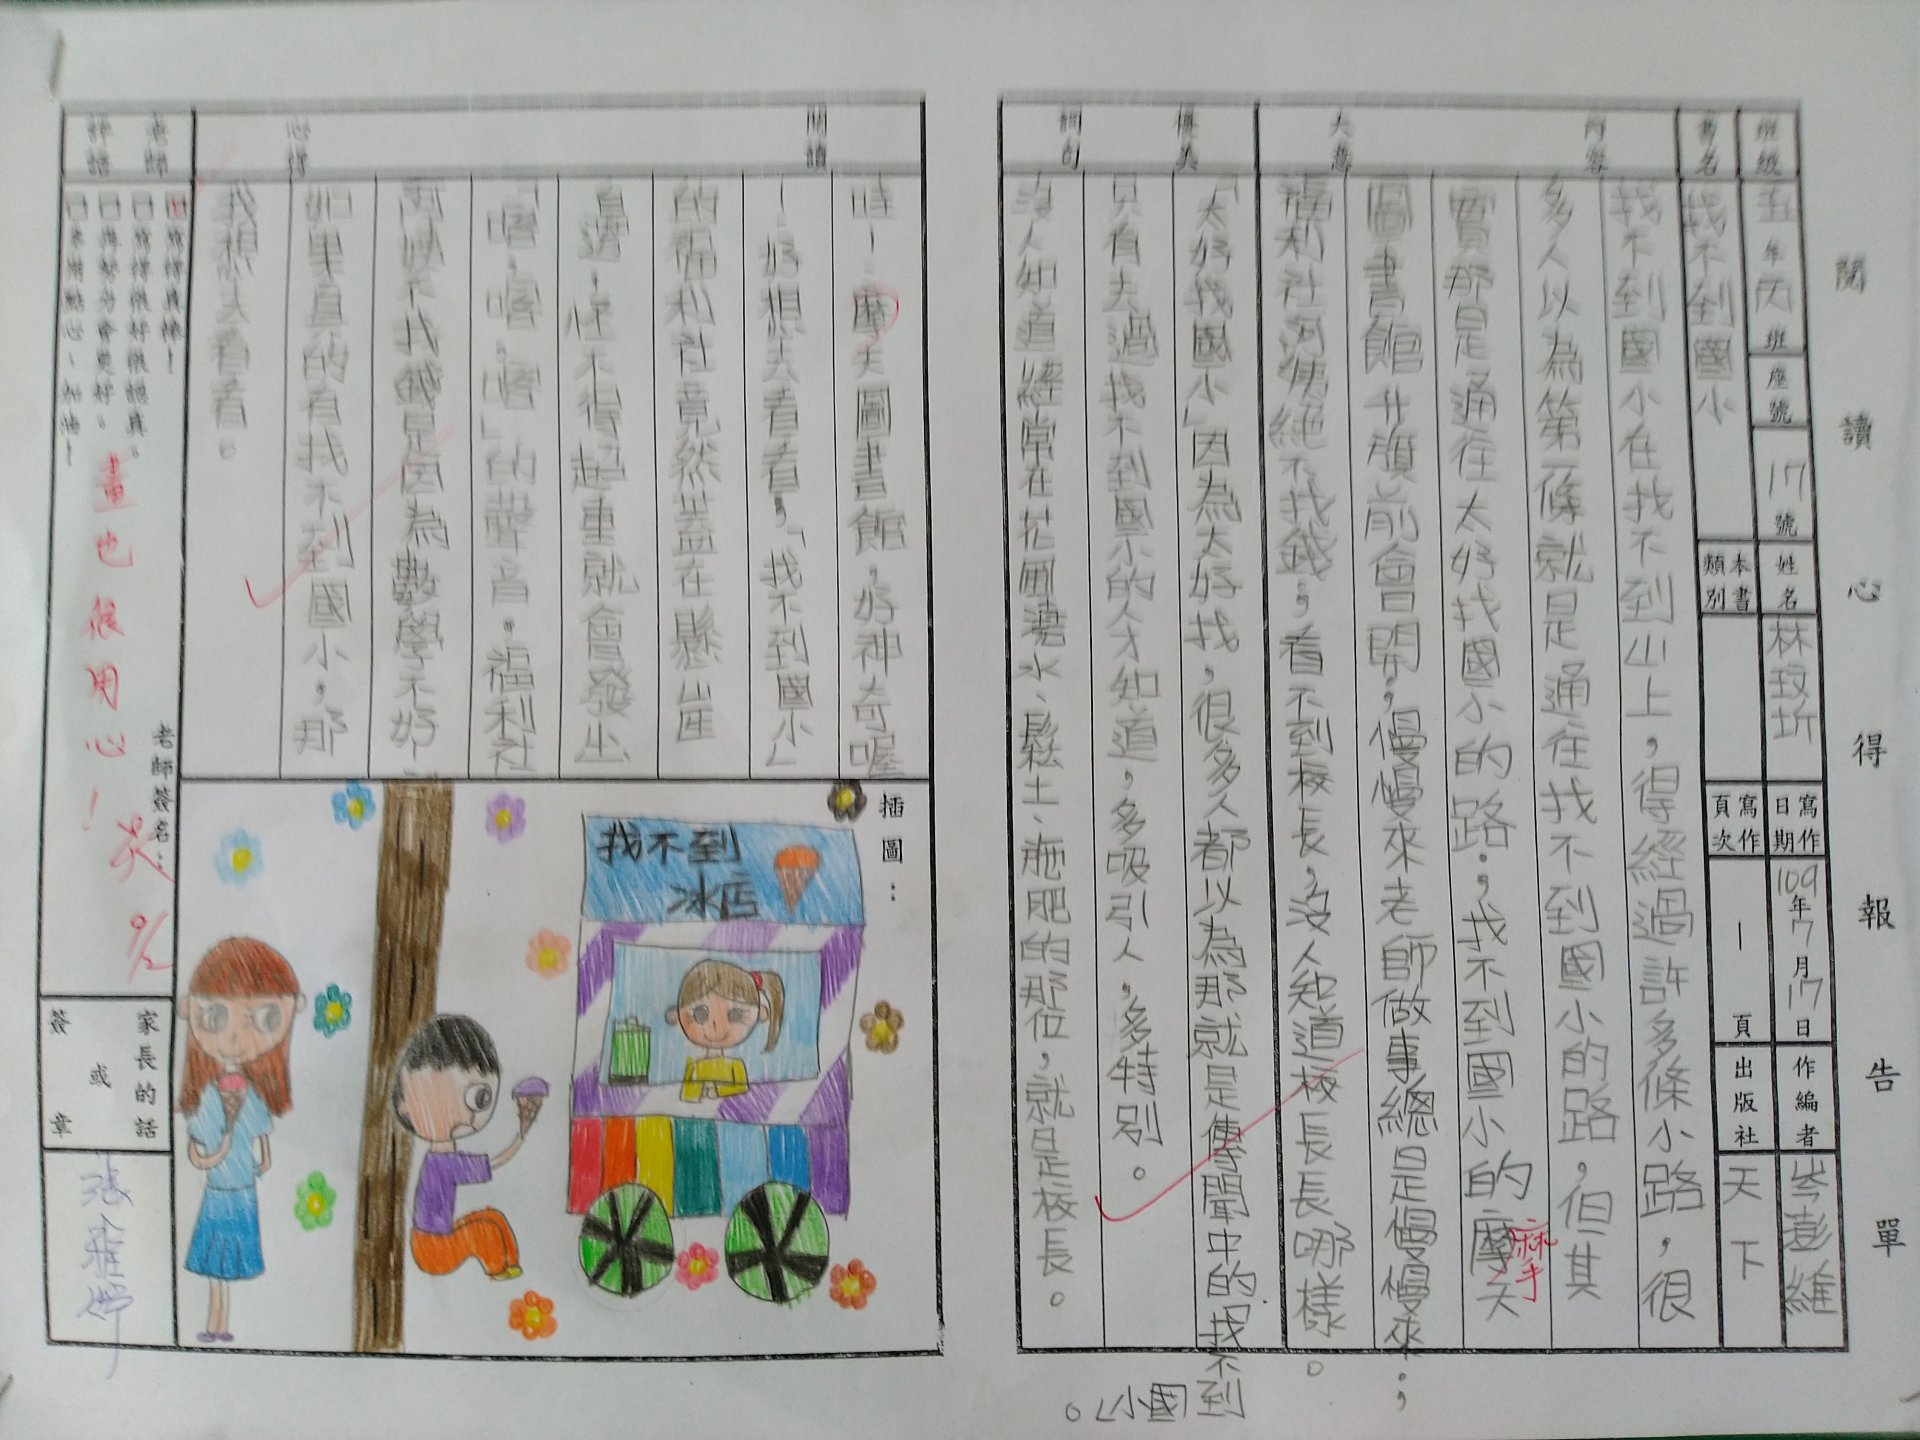 閱讀心得報告單
班級
五年丙班
座號
17號
姓名
林玟圻
寫作日期
109年7月17日
作編者
岑澎維
書名
找不到國小
本書類別
寫作頁次
一頁
出版社
天下
內容大意
找不到國小在找不到山上,得經過許多條小路,很
多人以為第一條就是通往找不到國小的路,但其
實那是通往太好找國小的路;找不到國小的摩天
麻手
圖書館升旗前會開;慢慢來老師做事總是慢慢來;
福利社阿姨絕不找錢;看不到校長,沒人知道校長長哪樣。
優美詞句
「太好找國小」因為太好找,很多人都以為那就是傳聞中的「找不到
國小」。
只有去過找不到國小的人才知道,多吸引人,多特別。
沒人知道經常在花圃澆水、鬆土、施肥的那位,就是校長。
閱讀心得
哇!摩天圖書館,好神奇喔
!好想去看看;「找不到國小」
的福利社竟然蓋在懸崖
旁邊,怪不得超重就會發出
「喀,喀,喀」的聲音。福利社
阿姨不找錢是因為數學不好!
如果真的有找不到國小,那
我想去看看。
插圖:
找不到
冰店
老師評語
寫得真棒!
寫得很好很認真。
再努力會更好。
多用點心,加油!
畫也很用心!
老師簽名:
家長的話
或
簽章